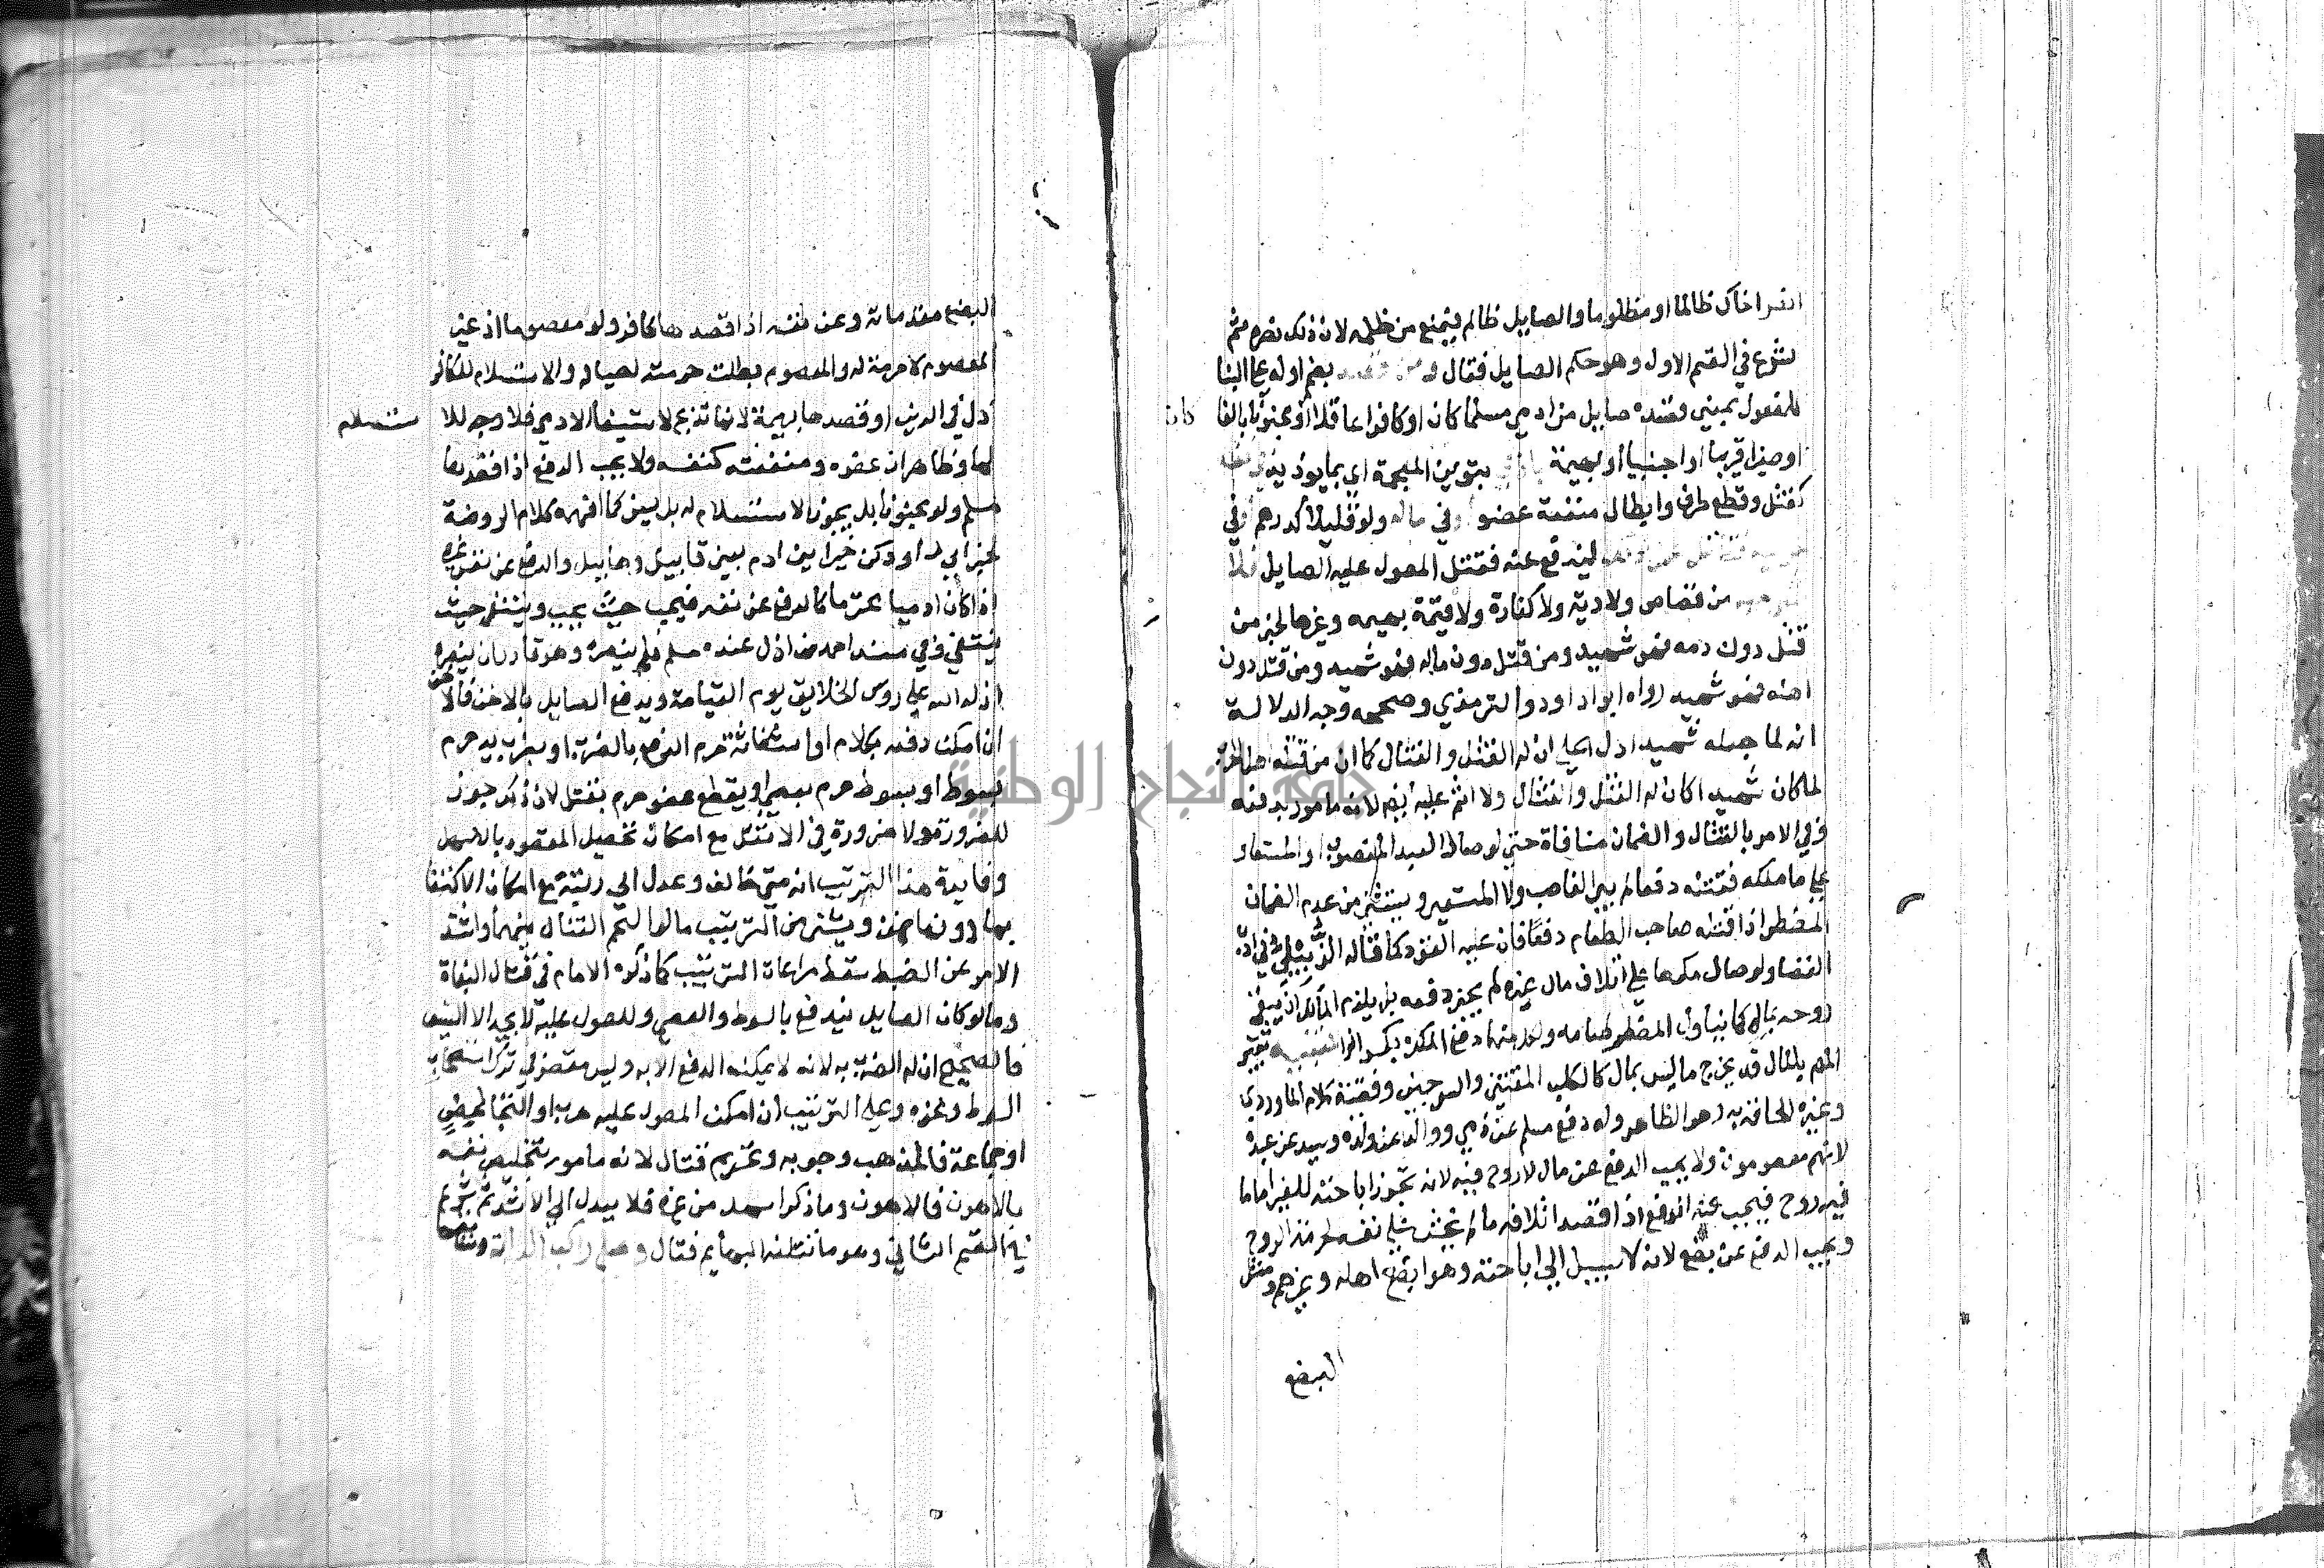 انصر اخاك ظالما او مظلوما والصايل ظالم فيمنع من ظلمه لان ذلك نصره ثم
شرع في القسم الاول وهو حكم الصايل فقال و بضم اوله على البنا
للمفعول بمعني وقصده صايل من ادمي مسلما كان او كافرا عاقلا او مجنونا بالغا
او صغيرا قريبا او اجنبيا او بهيمة بتنوين المعجمة اي بما يوذيه في نفسه
كقتل وقطع طرف وابطال منفعة عضو او في ماله ولو قليلا كدرهم او في
ليندفع عنه فقتل المصول عليه الصايل فلا
من قصاص ولا دية ولا كفارة ولا قيمة بهيمه وغيرها لخبر من
قتل دون دمه فهو شهيد ومن قتل دون ماله فهو شهيد ومن قتل دون
اهله فهو شهيد رواه ابو داود والترمذي وصححه وجه الدلالة
انه لما جعله شهيدا دل على ان له القتل والقتال كما ان من قتله اهل الحرب
لما كان شهيدا كان له القتل والقتال ولا اثم عليه ايضا لانه مامور بدفعه
وفي الامر بالقتال والضمان منافاة حتي لو صال العبد المغصوب او المستعار
علي مالكه فقتله دفعا لم يبرا الغاصب ولا المستعير ويستثني من عدم الضمان
المضطر اذا قتله صاحب الطعام دفعا فان عليه القود كما قاله الزبيلي في ادب
القضا ولو صال مكرها علي اتلاف مال غيره لم يجز دفعه بل يلزم المالك ان يقي
روحه بماله كما يناول المضطر طعامه ولكل منهما دفع المكره بكسر الرا تعبير
المص بالمال قد يخرج ما ليس بمال كالكلب المقتني والسرجين وقضية كلام الماوردي
وغيره الحاقه به وهو الظاهر وله دفع مسلم عن ذمي ووالد عن ولده وسيد عن عبده
لانهم معصومون ولا يجب الدفع عن مال لا روح فيه لانه تجوز اباحته للغير اما ما
فيه روح فيجب عنه الدفع اذا قصد اتلافه ما لم يخش علي نفسه لحرمة الروح
ويجب الدفع عن بضع لانه لا سبيل الي اباحته وهو ابضع اهله وغيرهم ومثل
البضع
البضع مقدماته وعن نفسه اذا قصدها كافر ولو معصوما اذ غير
المعصوم لا حرمة له والمعصوم بطلت حرمته لصياله والاستسلام للكافر
ذل في الدين او قصدها بهيمة لانها تذبح لاستبقا الادمي فلا وجه للا
ستسلام
لها وظاهر ان عضوه ومنفعته كنفسه ولا يجب الدفع اذا قصدها
مسلم ولو مجنونا بل يجوز الاستسلام له بل يسن كما افهمه كلام الروضة
لخبر ابي داود كن خير ابني ادم يعني قابيل وهابيل والدفع عن نفس غيره
اذا كان ادميا محترما كالدفع عن نفسه فيجب حيث يجب وينتفي حيث
ينتفي وفي مسند احمد من اذل عنده مسلم فلم ينصره وهو قادر ان ينصره
اذله الله علي روس الخلايق يوم القيامة ويدفع الصايل بالاخف فالاخف
ان امكن دفعه بكلام او استغاثة حرم الدفع بالضرب او بضرب بيد حرم
بسوط او بسوط حرم بعصي او بقطع عضو حرم بقتل لان ذلك جوز
للضرورة ولا ضرورة في الاثقل مع امكان تحصيل المقصود بالاسهل
وفايدة هذا الترتيب انه متي خالف وعدل الي رتبة مع امكان الاكتفا
بما دونها ضمن ويستثني من الترتيب ما لو التحم القتال بينهما واشتد
الامر عن الضبط سقط مراعاة الترتيب كما ذكره الامام في قتال البغاة
وما لو كان الصايل يندفع بالسوط والعصي والمصول عليه لا يجد الا السيف
فالصحيح ان له الضرب به لانه لا يمكنه الدفع الا به وليس مقصرا في ترك استصحاب
السوط ونحوه وعلي الترتيب ان امكن المصول عليه هرب او التجا لحصن
او جماعة فالمذهب وجوبه وتحريم قتال لانه مامور بتخليص نفسه
بالاهون فالاهون وما ذكر اسهل من غيره فلا يعدل الي الاشد ثم شرع
في القسم الثاني وهو ما تتلفه البهايم فقال وعلي راكب الدابة